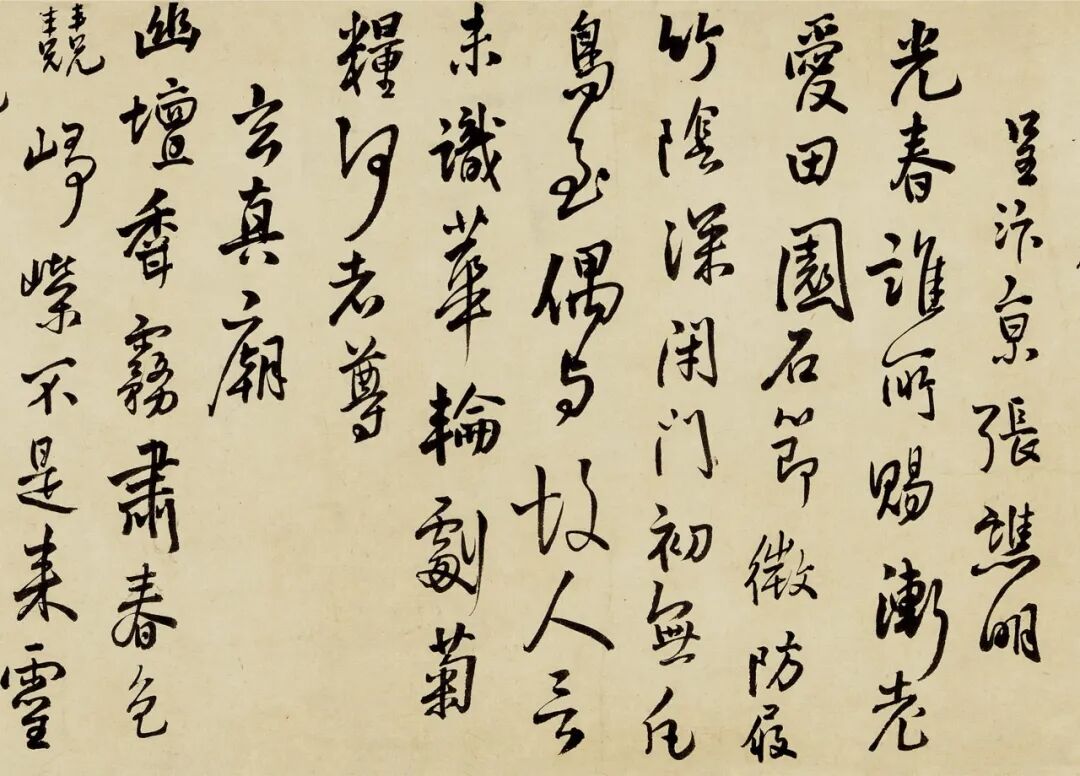 呈汴京張譙明
光春誰所賜漸老
愛田園石節微防屐
竹陰深閉門初無凡
鳥至偶与故人言
未識華輪劇菊
糧何老尊
玄真廟
幽壇香霧肅春色
競崢嶸不是来靈